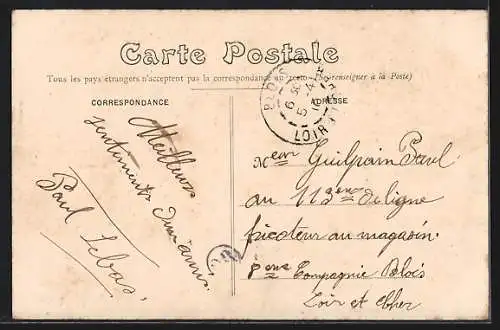 Carte Postale
Tous les pays étrangers n'acceptent pas la correspondance au recto (Se renseigner à la Poste)
CORRESPONDANCE
ADRESSE
BLOIS
LOIR
Meilleurs
sentiments d'un ami
Paul Lebas.
Mr Guilpain Paul
au 113eme de ligne
fricoteur au magasin.
8eme Compagnie Blois
Loir et Cher